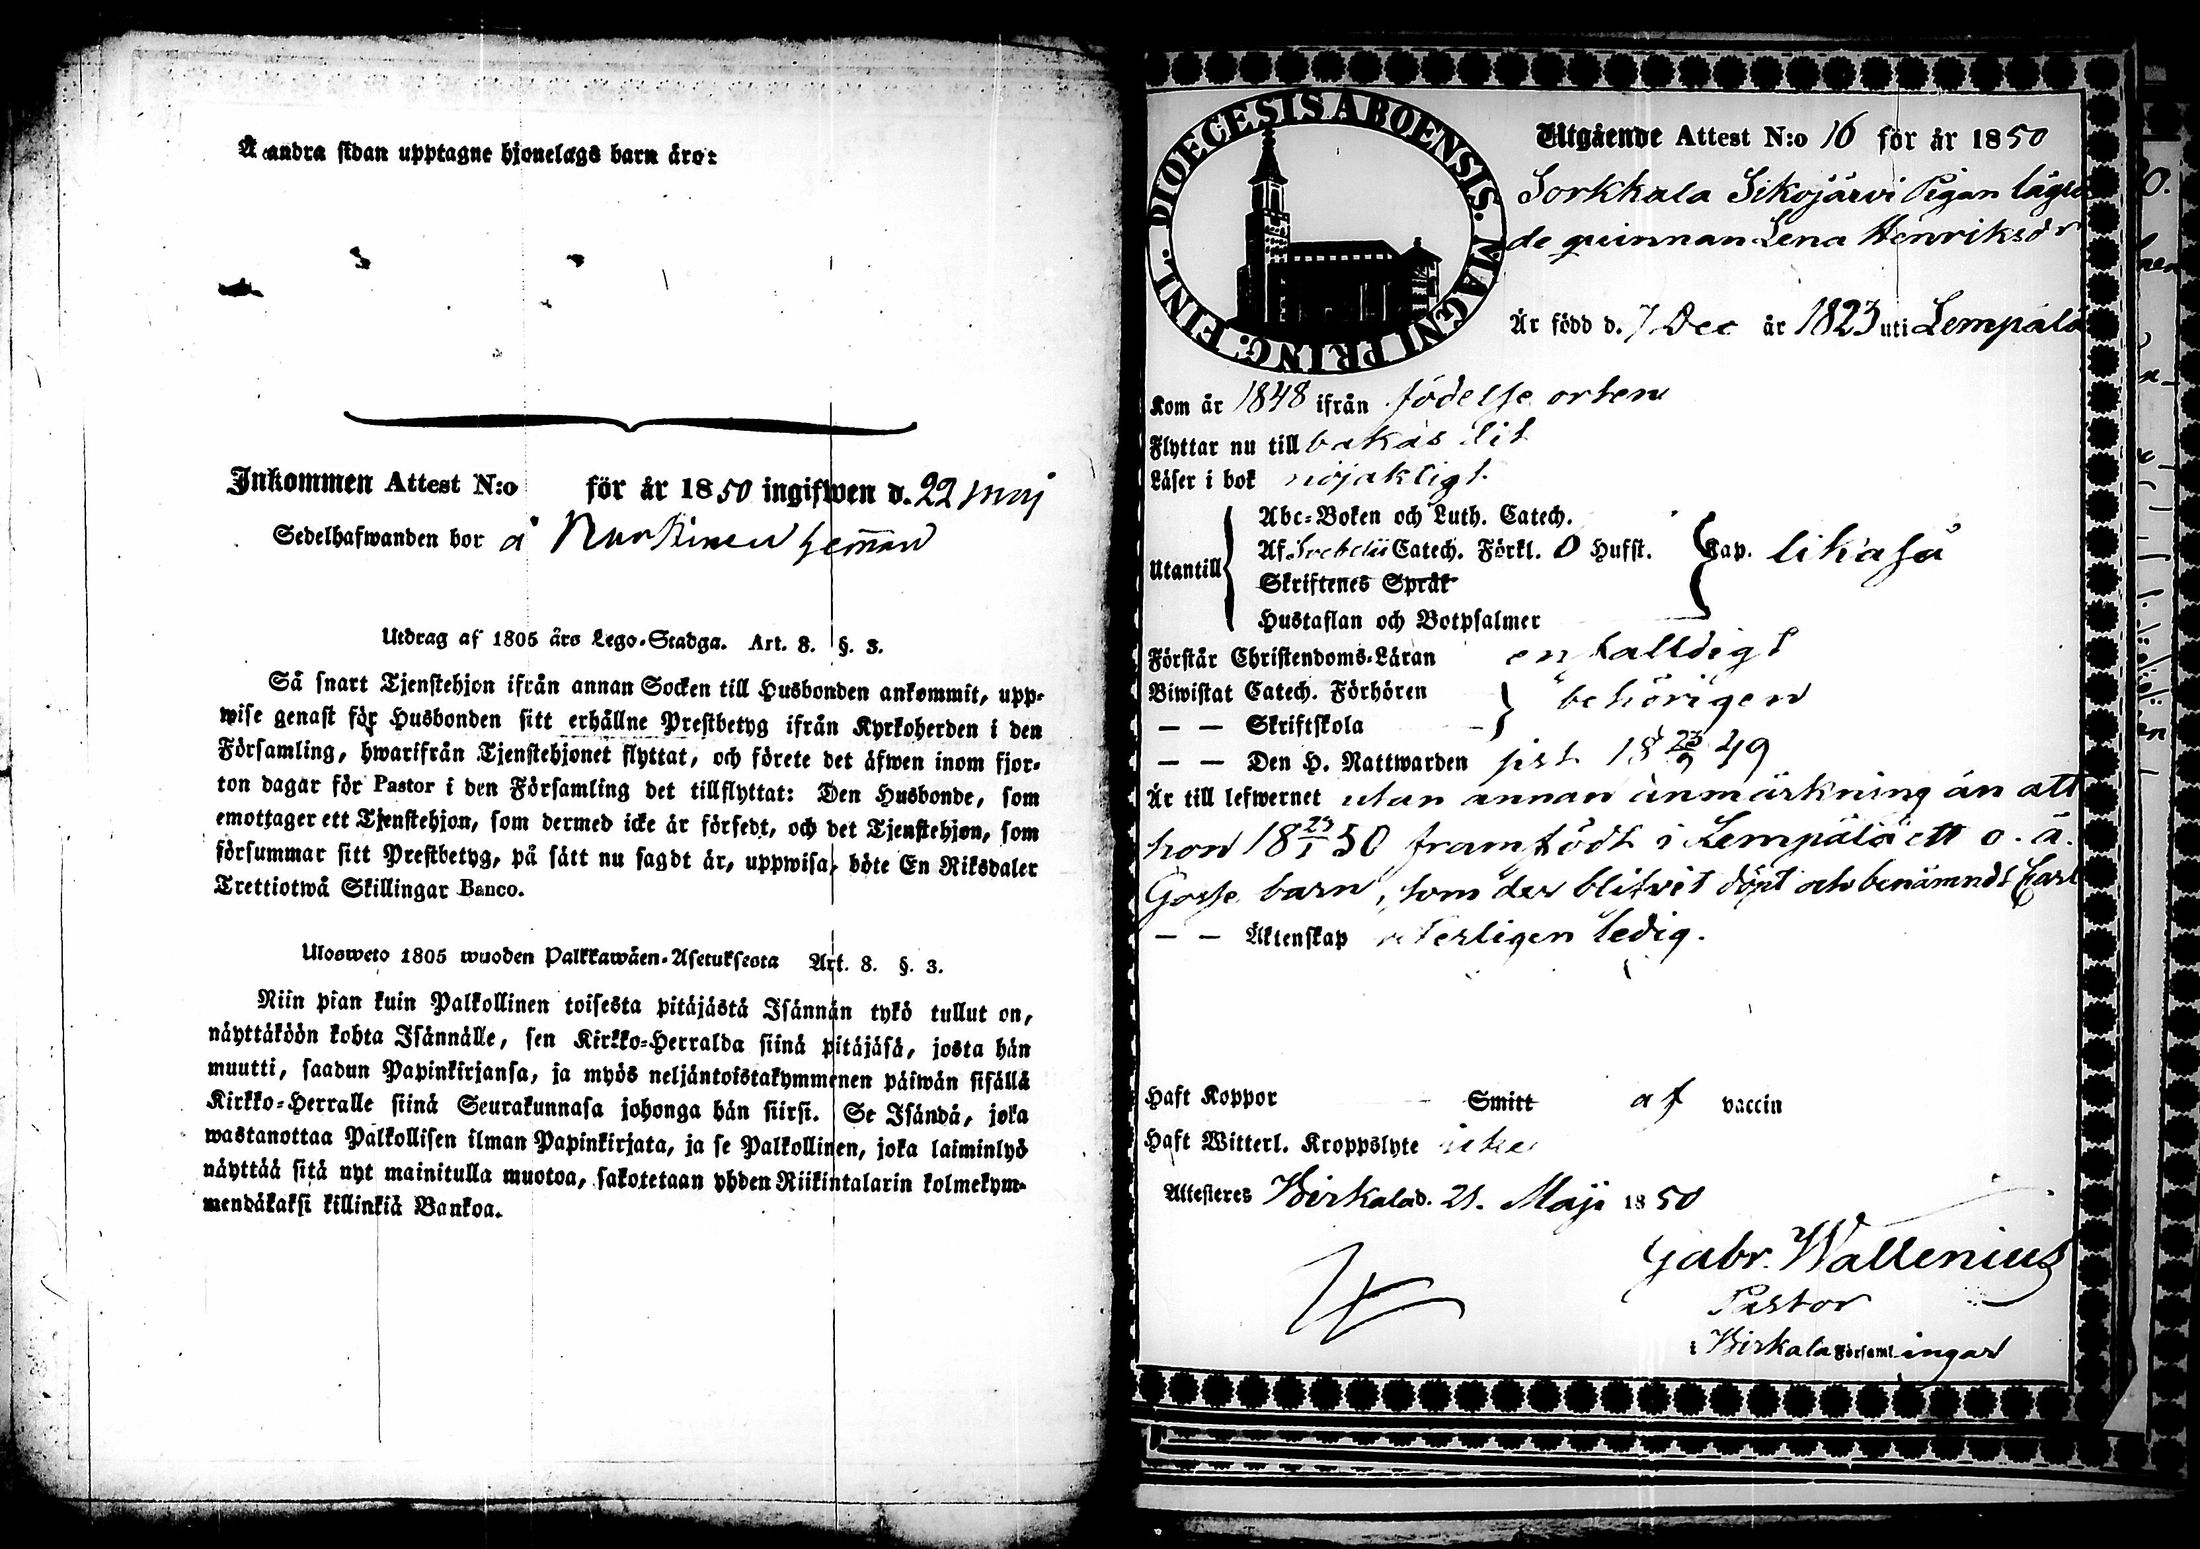 Å andra sidan upptagne hjonelags barn äro:
Inkommen Attest N:o för år 1850 ingifwen d. 22 maj
Sedelhafwanden bor å hemman
Utdrag af 1805 års Lego-Stadga. Art. 8. §. 3.
Så snart Tjenstehjon ifrån annan Socken till Husbonden ankommit, upp-
wise genast för Husbonden sitt erhållne Prestbetyg ifrån Kyrkoherden i den
Församling, hwarifrån Tjenstehjonet flyttat, och förete det äfwen inom fjor-
ton dagar för Pastor i den Församling det tillflyttat: Den Husbonde, som
emottager ett Tjenstehjon, som dermed icke är försedt, och det Tjenstehjon, som
försummar sitt Prestbetyg, på sätt nu sagdt är, uppwisa, böte En Riksdaler
Trettiotwå Skillingar Banco.
Ulosweto 1805 wuoden Palkkawäen-Asetuksesta Art. 8. §. 3.
Niin pian kuin Palkollinen toisesta pitäjästä Isännän tykö tullut on,
näyttäköön kohta Isännälle, sen Kirkko-Herralda siinä pitäjäsä, josta hän
muutti, saadun Papinkirjansa, ja myös neljäntoistakymmenen päiwän sisällä
Kirkko-Herralle siinä Seurakunnasa johonga hän siirsi. Se Isändä, joka
wastanottaa Palkollisen ilman Papinkirjata, ja se Palkollinen, joka laiminlyö
näyttää sitä nyt mainitulla muotoa, sakotetaan yhden Riikintalarin kolmekym-
mendäkaksi killinkiä Bankoa.
DIOECESIS ABOENSIS. MAGNI PRINC. FINL.
Utgående Attest N:o 16 för år 1850
Sorkkala Sikojärvi Pigan lägra
de quinnan Lena Henriksdr
Är född d. 7 Dec år 1823 uti Lempälä
Kom år 1848 ifrån födelse orten
Flyttar nu till bakas dit
Läser i bok nöjaktligt
Utantill
Abc-Boken och Luth. Catech.
Af Svebelii Catech. Förkl. 0 Hufst. Kap. likaså
Skriftenes Språk
Hustaflan och Botpsalmer
Förstår Christendoms-Läran enfalldigt
Biwistat Catech. Förhören behörigen
— — Skriftskola
— — Den H. Nattwarden sist 18 23/9 49
Är till lefwernet utan annan anmärkning än att
hon 18 50 framfödt i Lempälä ett o. ä.
Gosse barn, som der blifvit döpt och benämndt Carl
— — Äktenskap veterligen ledig.
Haft Koppor Smitt af vaccin
Haft Witterl. Kroppslyte icke
Attesteres Birkala d. 21. Maji 1850
Gabr. Wallenius
Pastor
i Birkala Församlingar